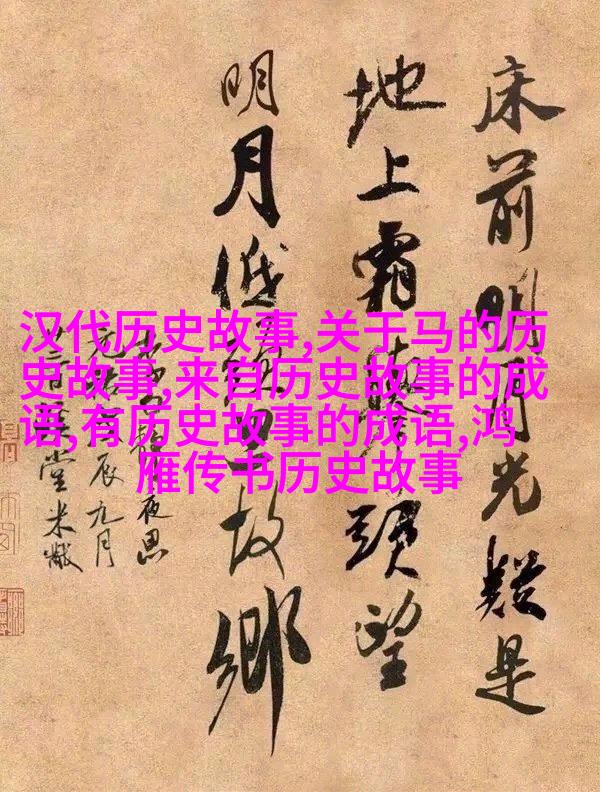 汉代历史故事,关于马的历
史故事,来自历史故事的成
语,有历史故事的成语,鸿
雁传书历史故事
床前明月光疑是
地上霜頭望
明月低故鄉
夜思
元辰九月
堂米黻